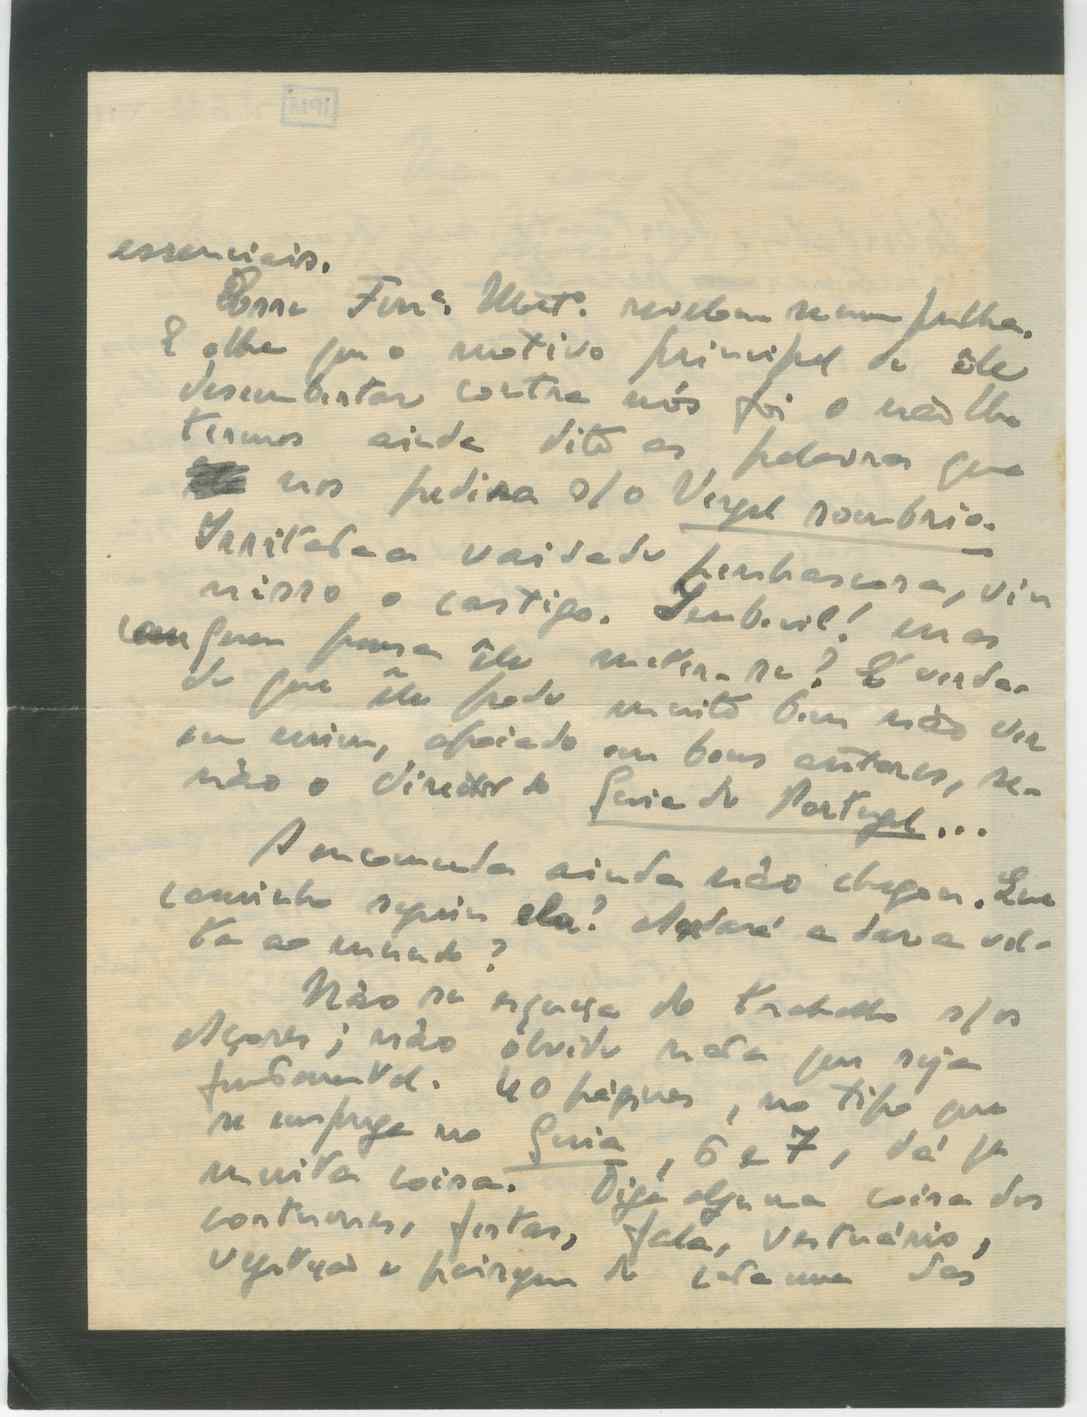 essenciais.
Esse Ferrª. Mat. revelou-se um pulha.
E olhe que o motivo principal de êle
desembestar contra nós foi o não lhe
termos ainda dito as palavras que
nos pedira s/o Vergel sombrio.
Irritada a vaidade penhascosa, viu
nisso o castigo. Imbecil! mas
com quem pensa êle meter-se? É verda-
de que êle pode muito bem não ver
em mim, apoiado em bons autores, se-
não o director do Guia de Portugal...
A encomenda ainda não chegou. Que
caminho seguiu ela? Andará a dar a vol-
ta ao mundo?
Não se esqueça do trabalho s/os
Açores; não olvide nada que seja
fundamental. 40 páginas, no tipo que
se emprega no Guia, 6 e 7, dá p.ª
muita coisa. Diga alguma coisa dos
costumes, festas, fala, vestuário,
vegetação e paisagem de cada uma das